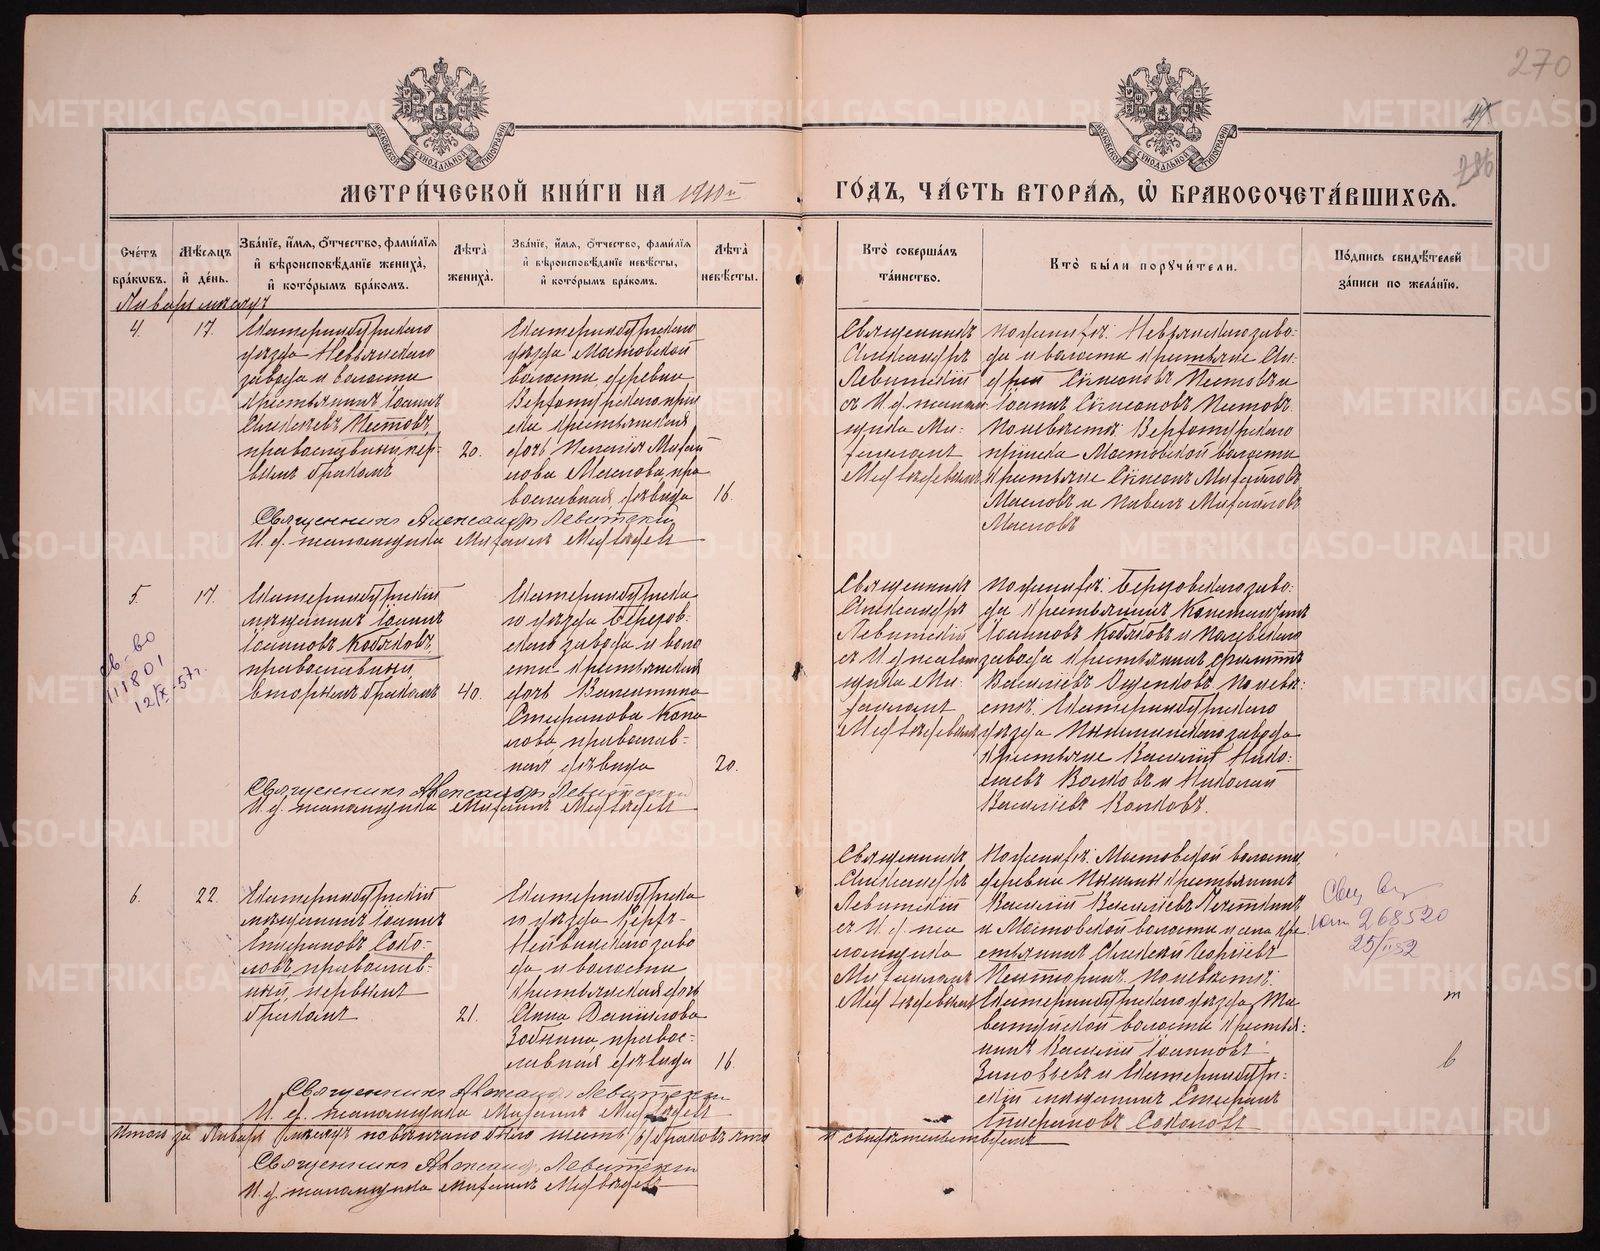 270
286
МЕТРИ́ЧЕСКОЙ КНИ́ГИ НА 1910й ГО́ДЪ, ЧА́СТЬ ВТОРА́Я, Ѡ҆ БРАКОСОЧЕТА́ВШИХСЯ.
Сче́тъ бра́кѡвъ.
Мѣ́сяцъ и҆ де́нь.
Зва́нїе, и҆́мѧ, ѻ҆́тчество, фами́лїѧ и҆ вѣроисповѣ́данїе жениха̀, и҆ кото́рымъ бра́комъ.
Лѣ́та жениха̀.
Зва́нїе, и҆́мѧ, ѻ҆́тчество, фами́лїѧ и҆ вѣроисповѣ́данїе невѣ́сты, и҆ кото́рымъ бра́комъ.
Лѣ́та невѣ́сты.
Кто̀ соверша́лъ та́инство.
Кто̀ бы́ли поручи́тели.
По́дпись свидѣ́телей за́писи по жела́нїю.
Январь мѣсяцъ
4.
17.
Екатеринбургскаго
уѣзда Невьянскаго
завода и волости
крестьянинъ Іоаннъ
Алексѣевъ Пестовъ,
православный, пер-
вымъ бракомъ
20.
Екатеринбургскаго
уѣзда Мостовской
волости, деревни
Верхотурскаго прі
иска крестьянская
дочь
Маслова, пра
вославная, дѣвица
16.
Священникъ
Александръ
Левитскій
съ И. д. псалом-
щика Ми-
хаиломъ
Медвѣдевымъ
По женихѣ: Невьянскаго заво-
да и волости крестьяне Ан-
дрей Сѷмеоновъ Пестовъ и
Іоаннъ Сѷмеоновъ Пестовъ.
По невѣстѣ: Верхотурскаго
пріиска Мостовской волости
крестьяне Сѷмеонъ Михайловъ
Масловъ и Павелъ Михайловъ
Масловъ
Священникъ Александръ Левитскій
И. д. псаломщика Михаилъ Медвѣдевъ
5.
17.
Екатеринбургскій
мѣщанинъ Іоаннъ
Іоанновъ Кобяковъ,
православный,
вторымъ бракомъ
40.
Екатеринбургска
го уѣзда Березов-
скаго завода и воло
сти крестьянская
дочь Валентина
Стефанова Копы
лова, православ-
ная, дѣвица
20.
Священникъ
Александръ
Левитскій
съ И. д. псалом
щика Ми-
хаиломъ
Медвѣдевымъ
По женихѣ: Березовскаго заво-
да крестьянинъ Константинъ
Іоанновъ Кобяковъ и
завода крестьянинъ
Васильевъ Ощепковъ. По невѣ-
стѣ: Екатеринбургскаго
уѣзда Пышминскаго завода
крестьяне Василій Нико-
лаевъ Волковъ и Николай
Васильевъ Волковъ.
Священникъ Александръ Левитскій
И. д. псаломщика Михаилъ Медвѣдевъ
св-во
11801
12/X-57г.
6.
22.
Екатеринбургскій
мѣщанинъ Іоаннъ
Соко-
ловъ, православ-
ный, первымъ
бракомъ
21.
Екатеринбургска
го уѣзда Верхъ-
Нейвинскаго заво
да и волости
крестьянская дочь
Анна Даніилова
Зобнина, правос-
лавная, дѣвица
16.
Священникъ
Александръ
Левитскій
съ И. д. пса
ломщика
Михаиломъ
Медвѣдевымъ
По женихѣ: Мостовской волости,
деревни Пышмы крестьянинъ
Василій Васильевъ
и Мостовской волости и села кре
стьянинъ Алексѣй Георгіевъ
По невѣстѣ:
Екатеринбургскаго уѣзда
волости крестья-
нинъ Василій Іоанновъ
Зиновьевъ и Екатеринбург-
скій мѣщанинъ Стефанъ
Соколовъ
268520
25/II 52
Священникъ Александръ Левитскій
И. д. псаломщика Михаилъ Медвѣдевъ
Итого за Январь мѣсяцъ повѣнчано было шесть /6/ браковъ, что и свидѣтельствуемъ
Священникъ Александръ Левитскій
И. д. псаломщика Михаилъ Медвѣдевъ
METRIKI.GASO-URAL.RU